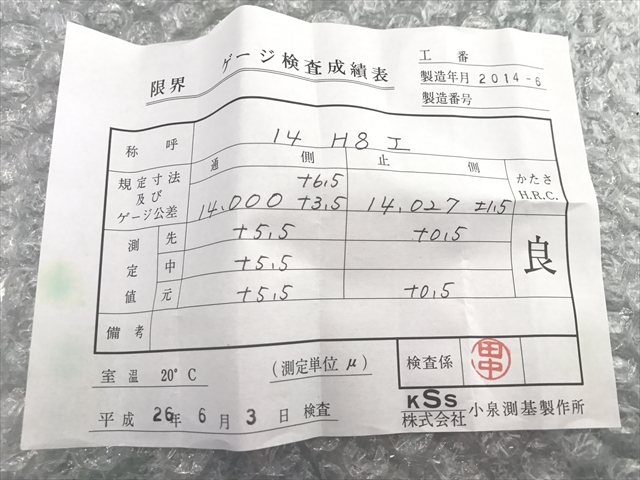 限界 ゲージ検査成績表
工番
製造年月 2014-6
製造番号
称呼 14 H8 工
規定寸法及びゲージ公差 通側 止側 かたさ H.R.C.
+6.5
14.000 +3.5 14.027 ±1.5
測定値 先 +5.5 +0.5 良
中 +5.5
元 +5.5 +0.5
備考
室温 20°C (測定単位μ) 検査係 田中
平成 26年 6月 3日 検査
KSS
株式会社 小泉測基製作所